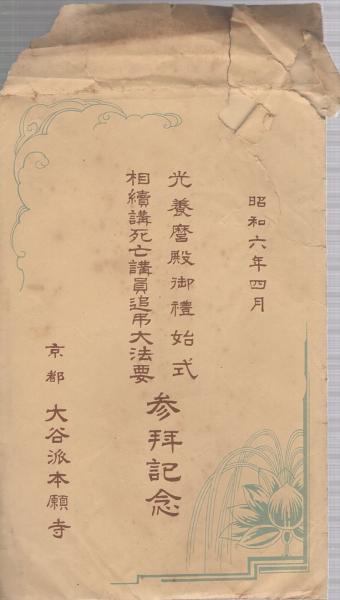 昭和六年四月
光養麿殿御禮始式
相續講死亡講員追弔大法要
参拜記念
京都 大谷派本願寺